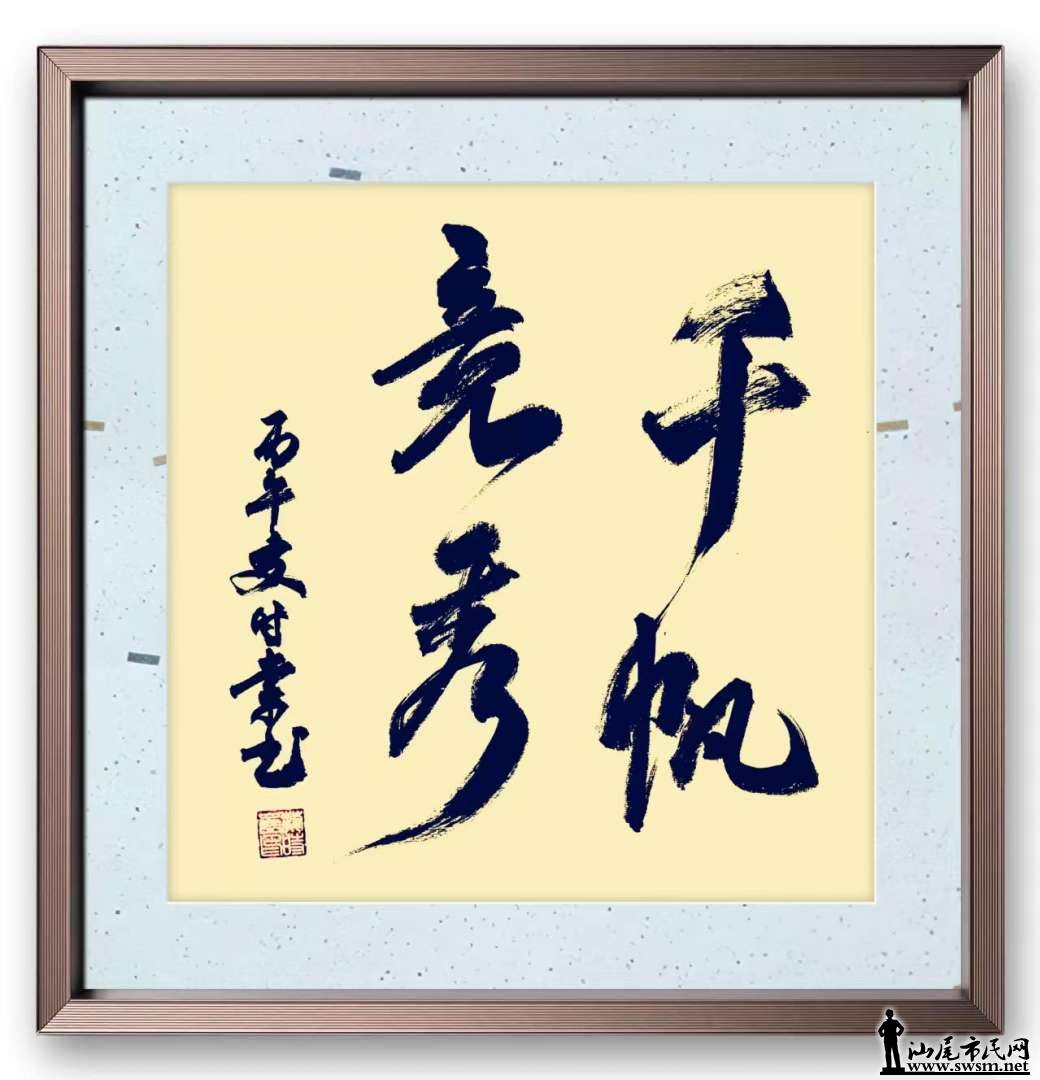 千帆
竞秀
丙午
时
书
汕尾市民网
www.swsm.net